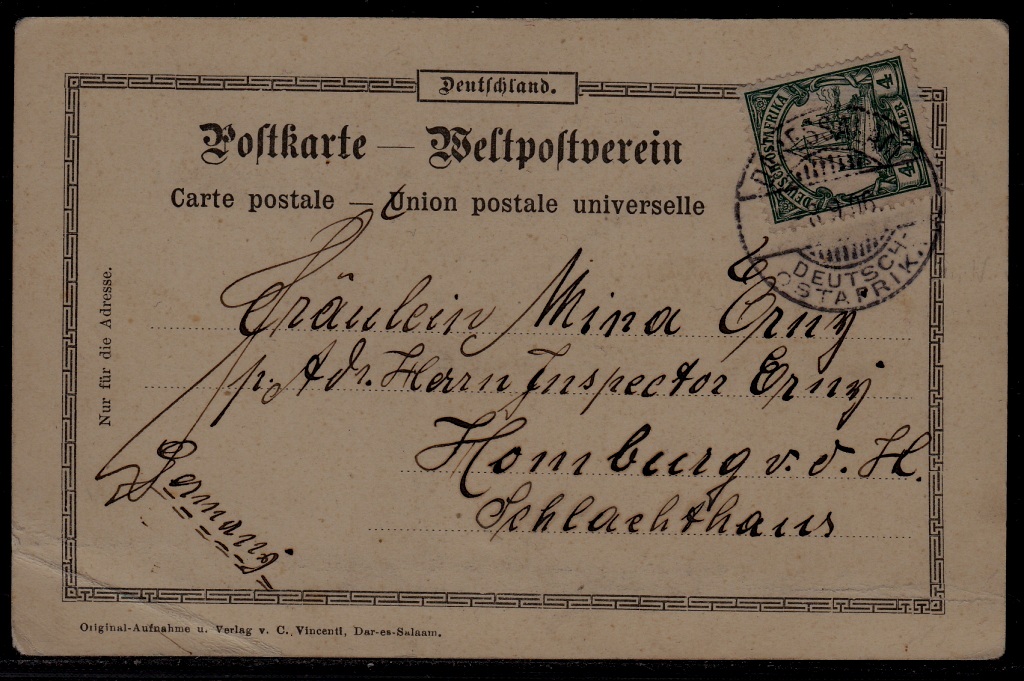 Deutschland.
Postkarte — Weltpostverein
Carte postale — Union postale universelle
DEUTSCH-OSTAFRIKA
4 HELLER 4
DEUTSCH-
OSTAFRIK.
Nur für die Adresse.
Fräulein Mina Erny
p. Adr. Herrn Inspector Erny
Homburg v. d. H.
Schlachthaus
Original-Aufnahme u. Verlag v. C. Vincenti, Dar-es-Salaam.